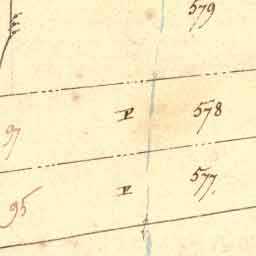 579
578
97
577
95